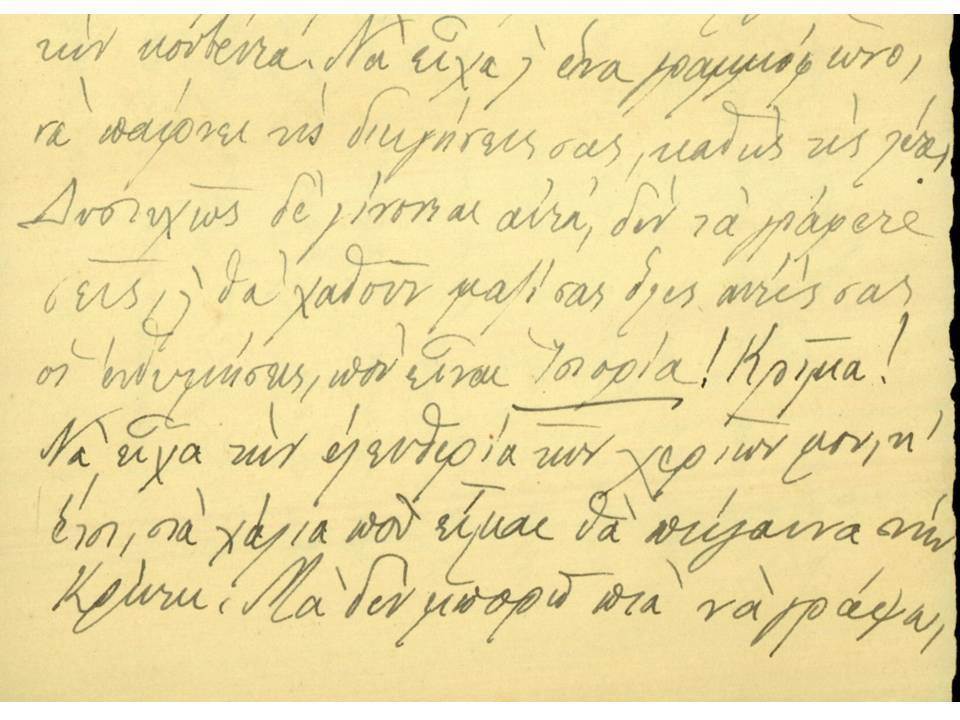 τὴν κουβέντα. Νὰ εἶχα ἕνα γραμμόφωνο,
νὰ παίρνει τὶς διηγήσεις σας, καθὼς τὶς λέτε,
Δυστυχῶς δὲ γίνονται αὐτά, δὲν τὰ γράφετε
σεῖς, θὰ χαθοῦν μαζί σας ὅλες αὐτές σας
οἱ ἐνθυμήσεις, ποὺ εἶναι Ἱστορία! Κρῖμα!
Νὰ εἶχα τὴν ἐλευθερία τῶν χεριῶν μου, κ'
ἔτσι, στὰ χάλια ποὺ εἶμαι θὰ πήγαινα στὴν
Κρήτη. Μὰ δὲν μπορῶ πιὰ νὰ γράψω,